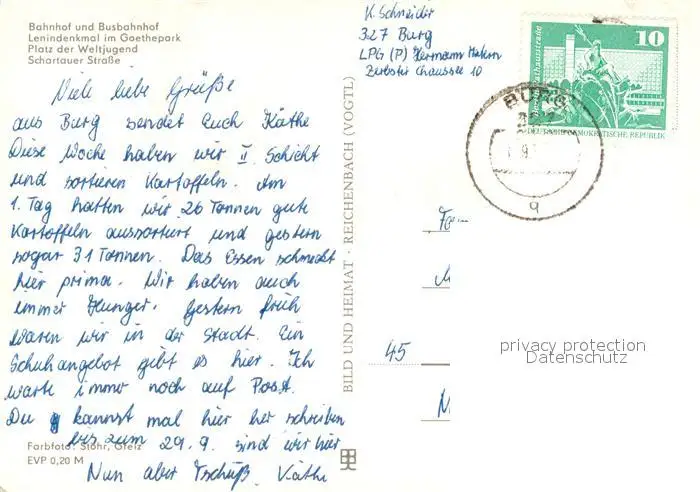 Bahnhof und Busbahnhof
Lenindenkmal im Goethepark
Platz der Weltjugend
Schartauer Straße
Viele liebe Grüße
aus Burg sendet Euch Käthe
Diese Woche haben wir II. Schicht
und sortieren Kartoffeln. Am
1. Tag hatten wir 26 Tonnen gute
Kartoffeln aussortiert und gestern
sogar 31 Tonnen. Das Essen schmeckt
hier prima. Wir haben auch
immer Hunger. Gestern früh
waren wir in der Stadt. Ein
Schuhangebot gibt es hier. Ich
warte immer noch auf Post.
Du kannst mal hier her schreiben
bis zum 29.9. sind wir hier
Nun aber Tschüß. Käthe
Farbfoto: Stöhr, Greiz
EVP 0,20 M
BILD UND HEIMAT · REICHENBACH (VOGTL)
K. Schneider
327 Burg
LPG (P) Hermann Matern
Zerbster Chaussee 10
10
DEUTSCHE DEMOKRATISCHE REPUBLIK
BURG
327
9
q
45
privacy protection
Datenschutz